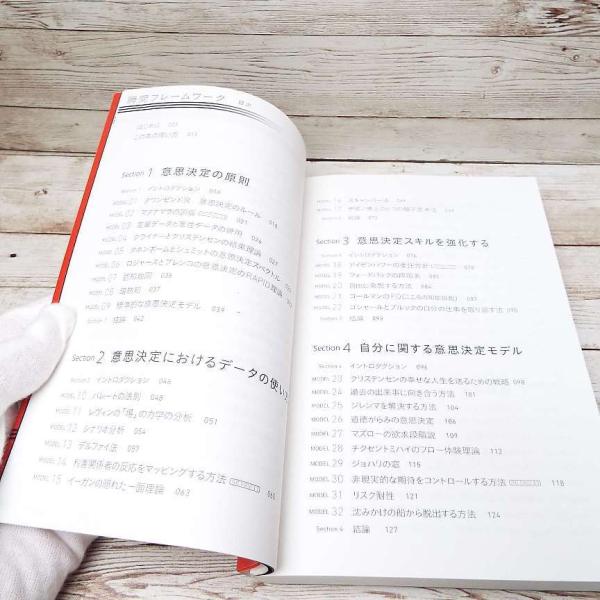 フレームワーク 目次
はじめに
この本の使い方 013
Section 1 意思決定の原則
Section 1 イントロダクション 016
MODEL 01 タウンゼンド流 意思決定のルール 018
MODEL 02 マクナマラの誤謬 021
MODEL 03 定量データと定性データの併用
MODEL 04 クライナーとクリステンセンの結束理論
MODEL 05 タネンボームとシュミットの意思決定スペクトル
MODEL 06 ロジャースとブレンコの意思決定のRAPID理論
MODEL 07
MODEL 08
MODEL 09 標準的な意思決定モデル 039
Section 1 結論 042
Section 2 意思決定におけるデータの使い方
Section 2 イントロダクション 046
MODEL 10 パレートの法則 048
MODEL 11 レヴィンの「場」の力学の分析 051
MODEL 12 シナリオ分析 054
MODEL 13 デルファイ法 057
MODEL 14 利害関係者の反応をマッピングする方法 060
MODEL 15 イーガンの隠れた一面理論 063
MODEL 16 スキャンパー法
MODEL 17
結論
Section 3 意思決定スキルを強化する
イントロダクション
MODEL 18
MODEL 19 フィードバックの
MODEL 20 自由に発想する方法
MODEL 21 ゴールマンの
MODEL 22 ゴシャールとブルックの自分の仕事を取り戻す法 090
Section 3 結論 093
Section 4 自分に関する意思決定モデル
Section 4 イントロダクション 096
MODEL 23 クリステンセンの幸せな人生を送るための戦略 098
MODEL 24 過去の出来事に向き合う方法 101
MODEL 25 ジレンマを解決する方法 104
MODEL 26 道徳がらみの意思決定 106
MODEL 27 マズローの欲求段階説 109
MODEL 28 チクセントミハイのフロー体験理論 112
MODEL 29 ジョハリの窓 115
MODEL 30 非現実的な期待をコントロールする方法 118
MODEL 31 リスク耐性 121
MODEL 32 沈みかけの船から脱出する方法 124
Section 4 結論 127